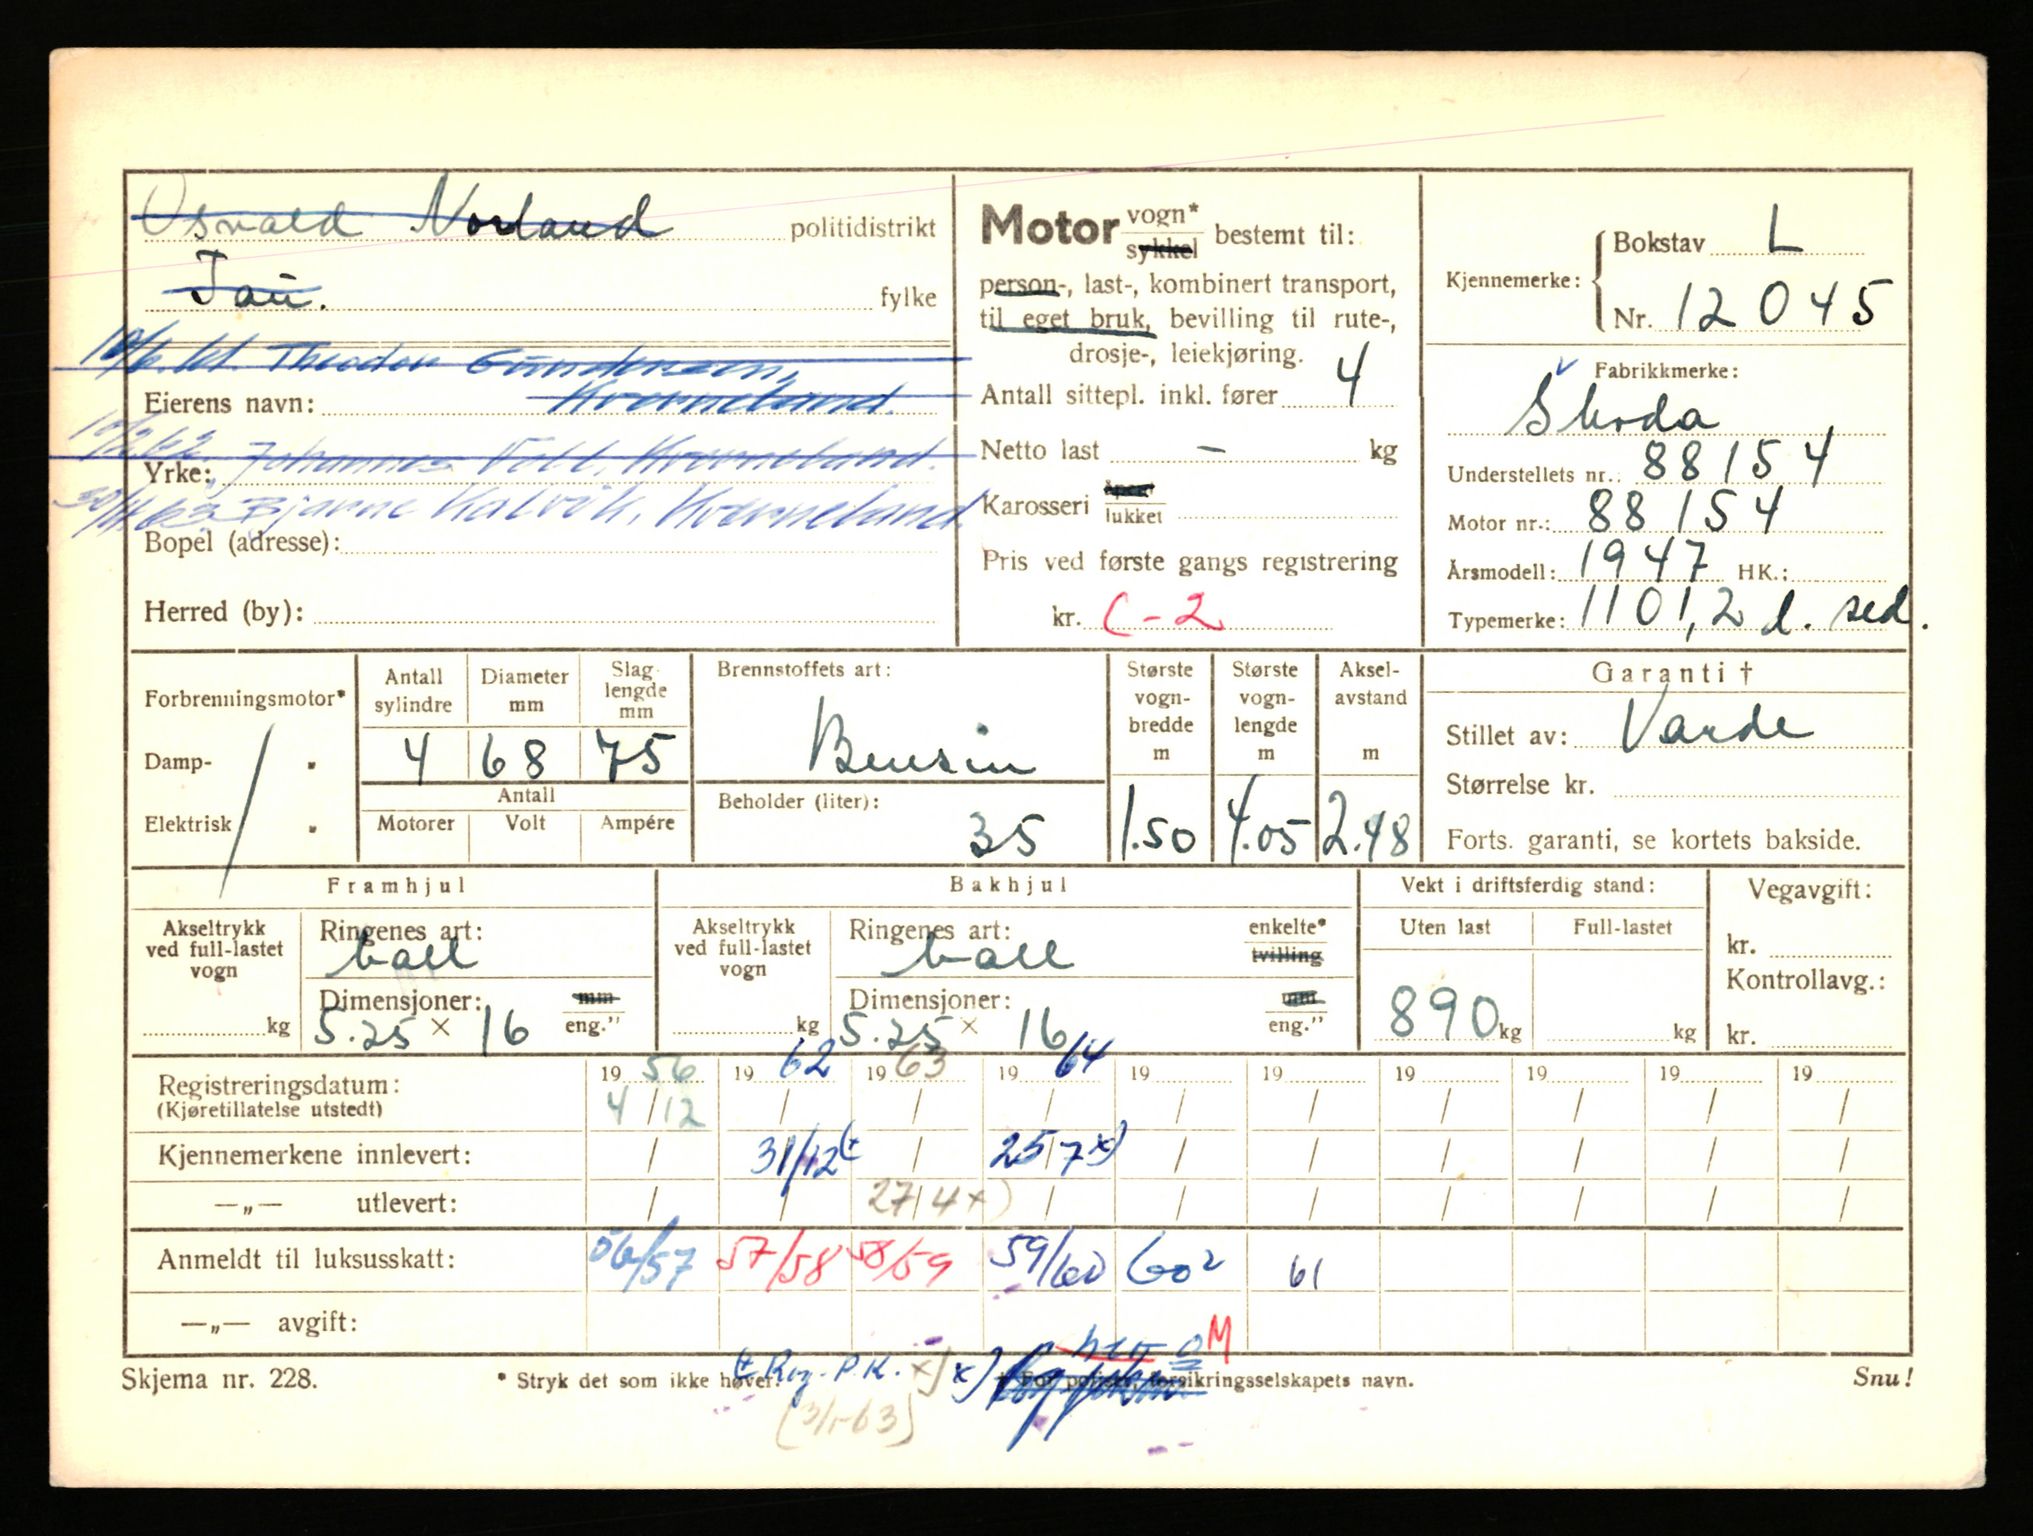 Osvald Norland politidistrikt
Tau. fylke
Theodor Gundersen,
Eierens navn: Kverneland.
10/2 62
Yrke: Johannes Voll, Kverneland.
30/4 63 Bjarne Kalvik, Kverneland.
Bopel (adresse):
Herred (by):
Motor vogn* sykkel bestemt til:
person-, last-, kombinert transport,
til eget bruk, bevilling til rute-,
drosje-, leiekjøring.
Antall sittepl. inkl. fører 4
Netto last – kg
Karosseri åpent lukket
Pris ved første gangs registrering
kr. C-2
Kjennemerke: Bokstav L
Nr. 12045
Fabrikkmerke:
Škoda
Understellets nr.: 88154
Motor nr.: 88154
Årsmodell: 1947 HK.:
Typemerke: 1101, 2 d. sed.
Forbrenningsmotor*
Damp- "
Elektrisk "
Antall sylindre Diameter mm Slaglengde mm
4 68 75
Antall
Motorer Volt Ampére
Brennstoffets art:
Bensin
Beholder (liter):
35
Største vogn-bredde m
1.50
Største vogn-lengde m
4.05
Aksel-avstand m
2.48
Garanti †
Stillet av: Varde
Størrelse kr.
Forts. garanti, se kortets bakside.
Framhjul
Akseltrykk ved full-lastet vogn
kg
Ringenes art:
ball
Dimensjoner: mm
5.25 × 16 eng."
Bakhjul
Akseltrykk ved full-lastet vogn
kg
Ringenes art: enkelte*
ball tvilling
Dimensjoner: mm
5.25 × 16 eng."
Vekt i driftsferdig stand:
Uten last Full-lastet
890 kg kg
Vegavgift:
kr.
Kontrollavg.:
kr.
Registreringsdatum: 1956 1962 1963 1964 19 19 19 19 19 19
(Kjøretillatelse utstedt) 4/12 / / / / / / / / /
Kjennemerkene innlevert: / 31/12 (+ / 25/7 x) / / / / / /
—„— utlevert: / / 27/4 x) / / / / / / /
Anmeldt til luksusskatt: 56/57 57/58 58/59 59/60 60² 61
—„— avgift:
M
Skjema nr. 228. * Stryk det som ikke høver. † For polise: forsikringsselskapets navn. Snu!
(+ Reg. P.K. x) x)
(3/1-63)